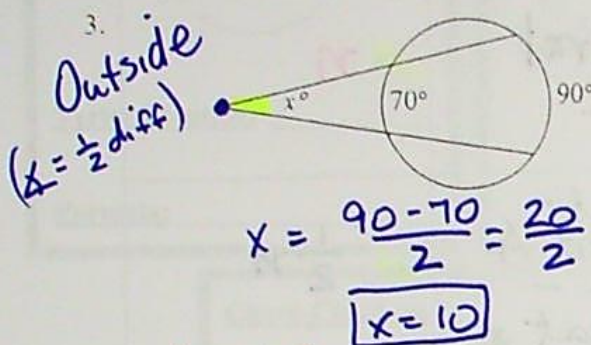 3.
Outside
(∡ = 1/2 diff)
x°
70°
90°
x = 90-70/2 = 20/2
x = 10